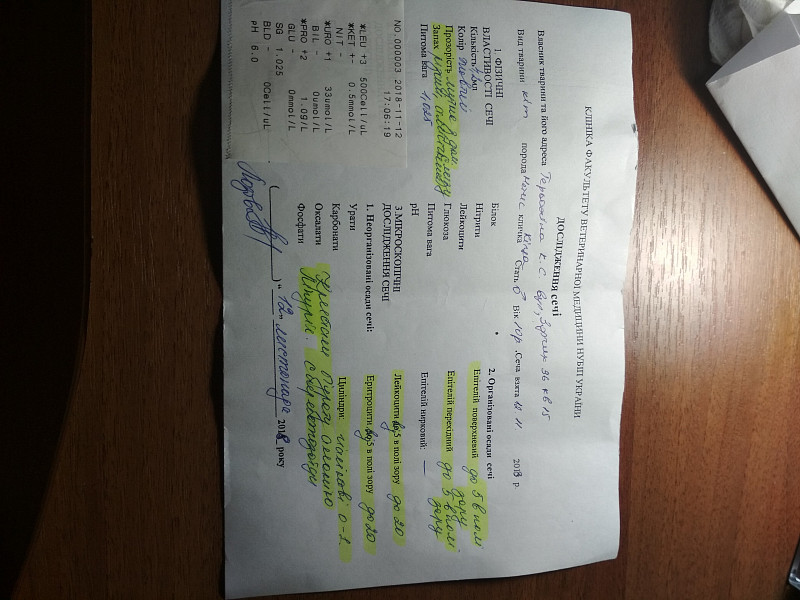 КЛІНІКА ФАКУЛЬТЕТУ ВЕТЕРИНАРНОЇ МЕДИЦИНИ НУБІП УКРАЇНИ
ДОСЛІДЖЕННЯ сечі
Власник тварини та його адреса К. С. вул, 36 кв 15
Вид тварини кіт порода кличка Стать ♂ Вік 10р. Сеча взята 12 11 2018 р
1. ФІЗИЧНІ
ВЛАСТИВОСТІ СЕЧІ
Кількість
Колір
Прозорість
Запах
Питома вага 1.025
NO.000003 2018-11-12
17:06:19
*LEU +3 500Cell/uL
*KET +- 0.5mmol/L
NIT -
*URO +1 33umol/L
BIL - 0umol/L
*PRO +2 1.0g/L
GLU - 0mmol/L
SG 1.025
BLD - 0Cell/uL
pH 6.0
Білок
Нітрити
Лейкоцити
Глюкоза
Питома вага
pH
3.МІКРОСКОПІЧНІ
ДОСЛІДЖЕННЯ СЕЧІ
1. Неорганізовані осади сечі:
Урати
Карбонати
Оксалати
Фосфати
2. Організовані осади сечі
Епітелій поверхневий до 5 в полі
зору
Епітелій перехідний до 5 в полі
зору
Епітелій нирковий: —
Лейкоцити в полі зору до 20
Еритроцити в полі зору до 20
Циліндри: 0-2
"12" листопада 2018 року